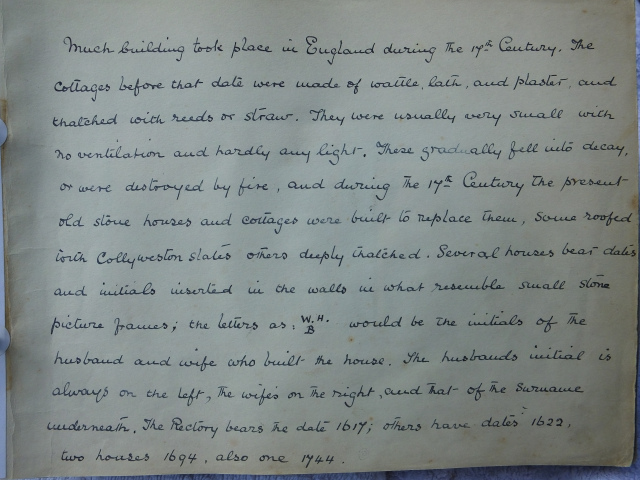 Much building took place in England during the 17th Century. The
cottages before that date were made of wattle, lath, and plaster, and
thatched with reeds or straw. They were usually very small with
no ventilation and hardly any light. These gradually fell into decay,
or were destroyed by fire, and during the 17th Century the present
old stone houses and cottages were built to replace them, some roofed
with Collyweston slates others deeply thatched. Several houses bear dates
and initials inserted in the walls in what resemble small stone
picture frames; the letters as: W.H. would be the initials of the
B
husband and wife who built the house. The husbands initial is
always on the left, the wife's on the right, and that of the surname
underneath. The Rectory bears the date 1617; others have dates 1622,
two houses 1694, also one 1744.